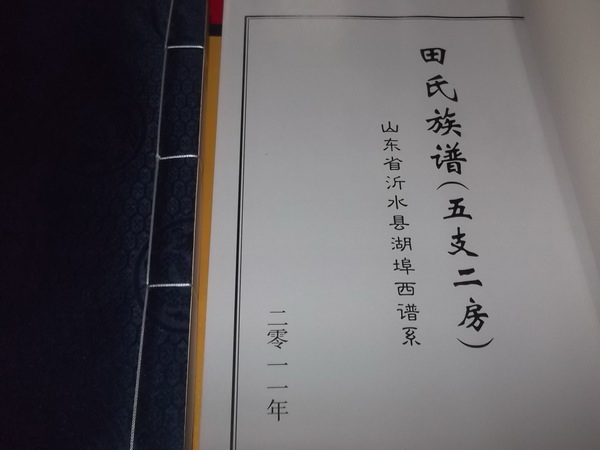 田氏族谱(五支二房)
山东省沂水县湖埠西谱系
二零一一年